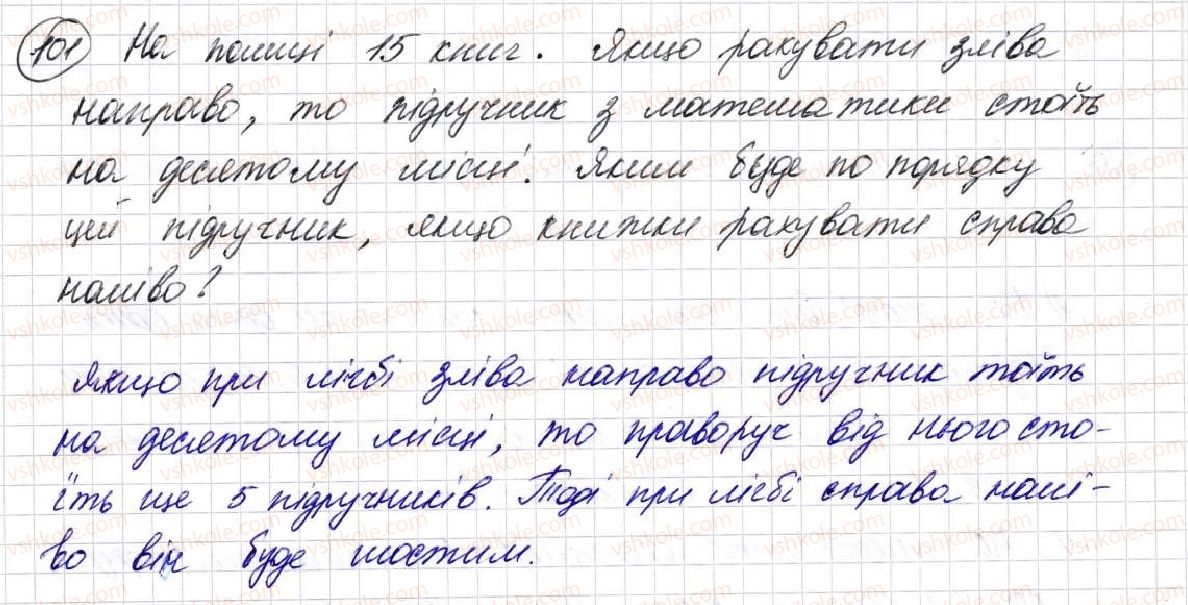 101 На полиці 15 книг. Якщо рахувати зліва
направо, то підручник з математики стоїть
на десятому місці. Яким буде по порядку
цей підручник, якщо книжки рахувати справа
наліво?
Якщо при лічбі зліва направо підручник тоїть
на десятому місці, то праворуч від нього сто-
їть ще 5 підручників. Тоді при лічбі справа налі-
во він буде шостим.